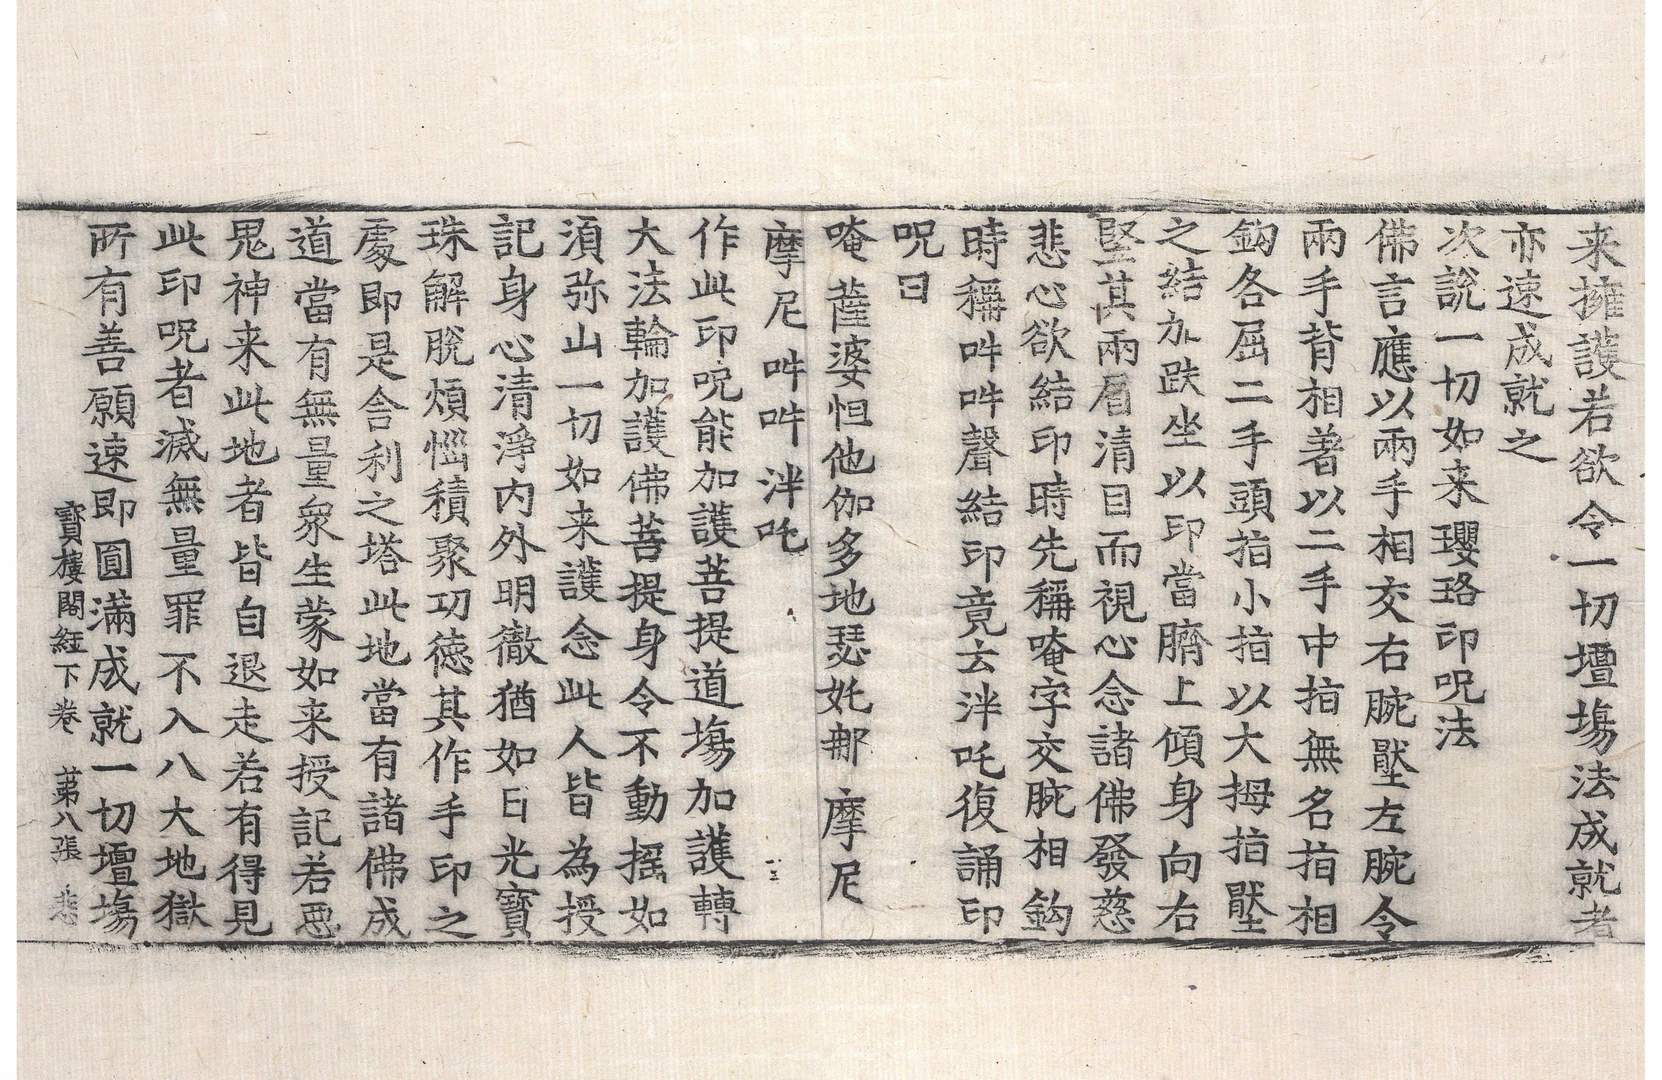 来擁護若欲令一切壇場法成就者
亦速成就之
次説一切如来瓔珞印呪法
佛言應以兩手相交右腕壓左腕令
兩手背相著以二手中指無名指相
鈎各屈二手頭指小指以大拇指壓
之結加趺坐以印當臍上傾身向右
竪其兩眉清目而視心念諸佛發慈
悲心欲結印時先稱唵字交腕相鈎
時稱吽吽聲結印竟云泮吒復誦印
呪曰
唵 薩婆怛他伽多地瑟妣那 摩尼
摩尼 吽吽 泮吒
作此印呪能加護菩提道場加護轉
大法輪加護佛菩提身令不動揺如
須弥山一切如来護念此人皆為授
記身心清淨内外明徹猶如日光寶
珠解脫煩惱積聚功德其作手印之
處即是舎利之塔此地當有諸佛成
道當有無量衆生蒙如来授記若惡
鬼神来此地者皆自退走若有得見
此印呪者滅無量罪不入八大地獄
所有善願速即圓滿成就一切壇場
寶樓閣経下卷 苐八張 悲